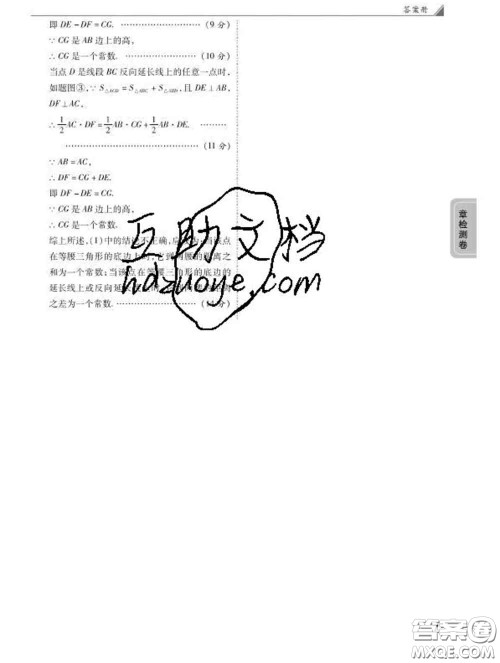 答案册
即 DE - DF = CG. ………………… (9 分)
∵ CG 是 AB 边上的高,
∴ CG 是一个常数. ………………… (10 分)
当点 D 是线段 BC 反向延长线上的任意一点时,
如题图③,∵
且 DE ⊥ AB,
DF ⊥ AC,
∴ 1/2 AC · DF = 1/2 AB · CG + 1/2 AB · DE. ………
………………………………… (11 分)
∵ AB = AC,
∴ DF = CG + DE.
即 DF - DE = CG.
∵ CG 是 AB 边上的高,
∴ CG 是一个常数.
综上所述,(1) 中的结论不正确,
当该点
在等腰三角形的底边上
距离之
和为一个常数;当该点在等腰三角形的底边的
延长线上或反向延长
之差为一个常数. …………………
章检测卷
互助文档
hdzuoye.com
答案圈
MXQE.COM